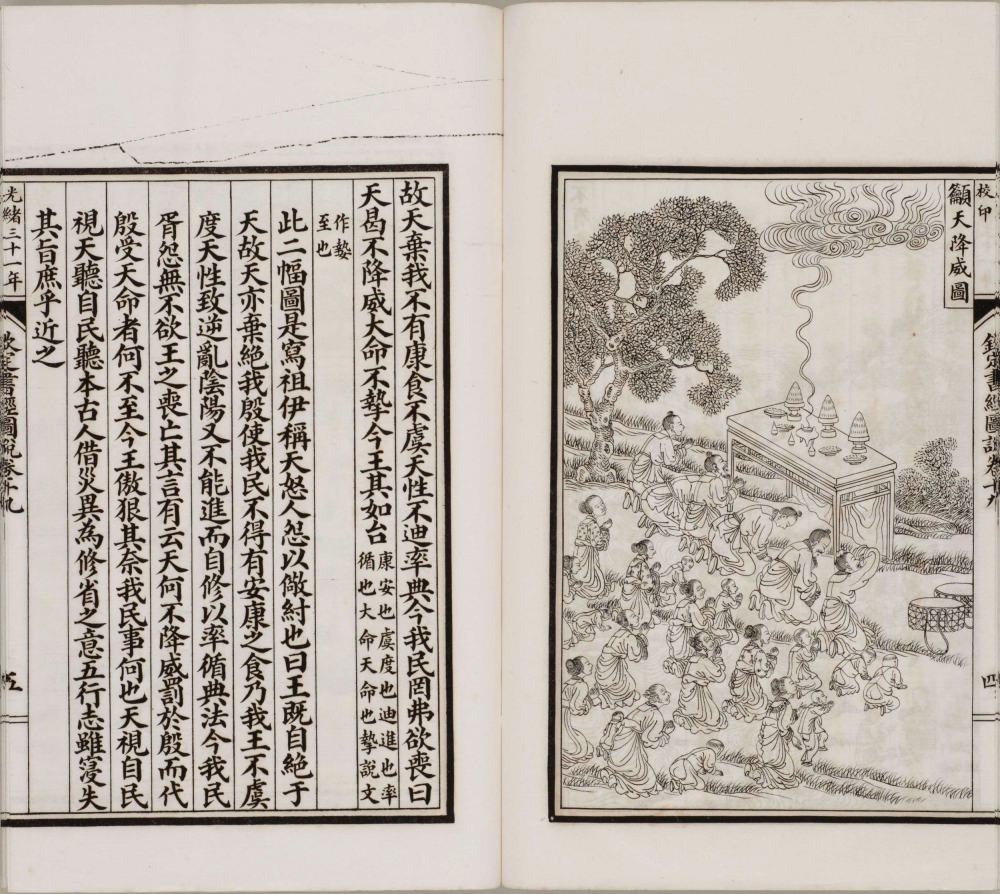 校印
欽定書經圖說卷十九
四
籲天降威圖
故天棄我不有康食不虞天性不迪率典今我民罔弗欲喪曰
天曷不降威大命不摯今王其如台
康安也虞度也迪進也率
循也大命天命也摯說文
作𡠗
至也
此二幅圖是寫祖伊稱天怒人怨以儆紂也曰王既自絕于
天故天亦棄絕我殷使我民不得有安康之食乃我王不虞
度天性致逆亂陰陽又不能進而自修以率循典法今我民
胥怨無不欲王之喪亡其言有云天何不降威罰於殷而代
殷受天命者何不至今王傲狠其奈我民事何也天視自民
視天聽自民聽本古人借災異為修省之意五行志雖寖失
其旨庶乎近之
光緒三十一年
欽定書經圖說卷十九
五